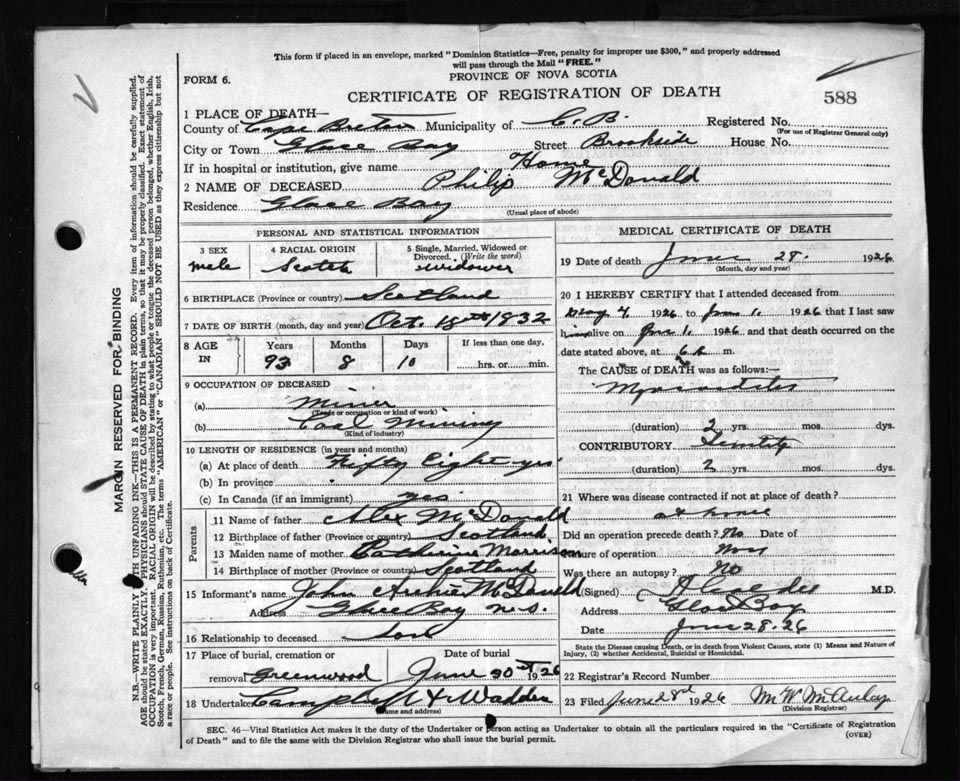 This form if placed in an envelope, marked "Dominion Statistics—Free, penalty for improper use $300," and properly addressed
will pass through the Mail "FREE."
FORM 6.
PROVINCE OF NOVA SCOTIA
CERTIFICATE OF REGISTRATION OF DEATH
588
1 PLACE OF DEATH—
County of Cape Breton Municipality of C. B. Registered No.
(For use of Registrar General only)
City or Town Glace Bay Street Brookside House No.
If in hospital or institution, give name Home
2 NAME OF DECEASED Philip McDonald
Residence Glace Bay
(Usual place of abode)
PERSONAL AND STATISTICAL INFORMATION
3 SEX male
4 RACIAL ORIGIN Scotch
5 Single, Married, Widowed or
Divorced. (Write the word)
widower
6 BIRTHPLACE (Province or country) Scotland
7 DATE OF BIRTH (month, day and year) Oct. 18th 1832
8 AGE IN Years Months Days If less than one day,
93 8 10 hrs. or min.
9 OCCUPATION OF DECEASED
(a) Miner
(Trade or occupation or kind of work)
(b) Coal Mining
(Kind of industry)
10 LENGTH OF RESIDENCE (in years and months)
(a) At place of death Fifty Eight yrs
(b) In province
(c) In Canada (if an immigrant) yes
Parents
11 Name of father Alex McDonald
12 Birthplace of father (Province or country) Scotland
13 Maiden name of mother Catherine Morrison
14 Birthplace of mother (Province or country) Scotland
15 Informant's name John Archie McDonald
Address Glace Bay N.S.
16 Relationship to deceased Son
17 Place of burial, cremation or Date of burial
removal Greenwood June 30st 1926
18 Undertaker Campbell & Wadden
(Name and address)
MEDICAL CERTIFICATE OF DEATH
19 Date of death June 28. 1926
(Month, day and year)
20 I HEREBY CERTIFY that I attended deceased from
May 4 1926 to June 1. 1926 that I last saw
him alive on June 1. 1926 and that death occurred on the
date stated above, at 6 m.
The CAUSE of DEATH was as follows:—
Myocarditis
(duration) 2 yrs. mos. dys.
CONTRIBUTORY Senility
(duration) 2 yrs. mos. dys.
21 Where was disease contracted if not at place of death?
at home
Did an operation precede death? No
Nature of operation
Was there an autopsy? No
(Signed) M.D.
Address Glace Bay
Date June 28. 26
State the Disease causing Death, or in death from Violent Causes, state (1) Means and Nature of
Injury, (2) whether Accidental, Suicidal or Homicidal.
22 Registrar's Record Number
23 Filed June 1926 M W McAulay
(Division Registrar)
SEC. 46—Vital Statistics Act makes it the duty of the Undertaker or person acting as Undertaker to obtain all the particulars required in the "Certificate of Registration
of Death" and to file the same with the Division Registrar who shall issue the burial permit.
(OVER)
MARGIN RESERVED FOR BINDING
N.B.—WRITE PLAINLY WITH UNFADING INK—THIS IS A PERMANENT RECORD. Every item of information should be carefully supplied.
AGE should be stated EXACTLY. PHYSICIANS should STATE CAUSE OF DEATH in plain terms, so that it may be properly classified. Exact statement of
OCCUPATION is very important. RACIAL ORIGIN will be described by stating to what people or tongue the deceased person belonged, whether English, Irish,
Scotch, French, German, Russian, Ruthenian, etc. The terms "AMERICAN" or "CANADIAN" SHOULD NOT BE USED as they express citizenship but not
a race or people. See instructions on back of Certificate.